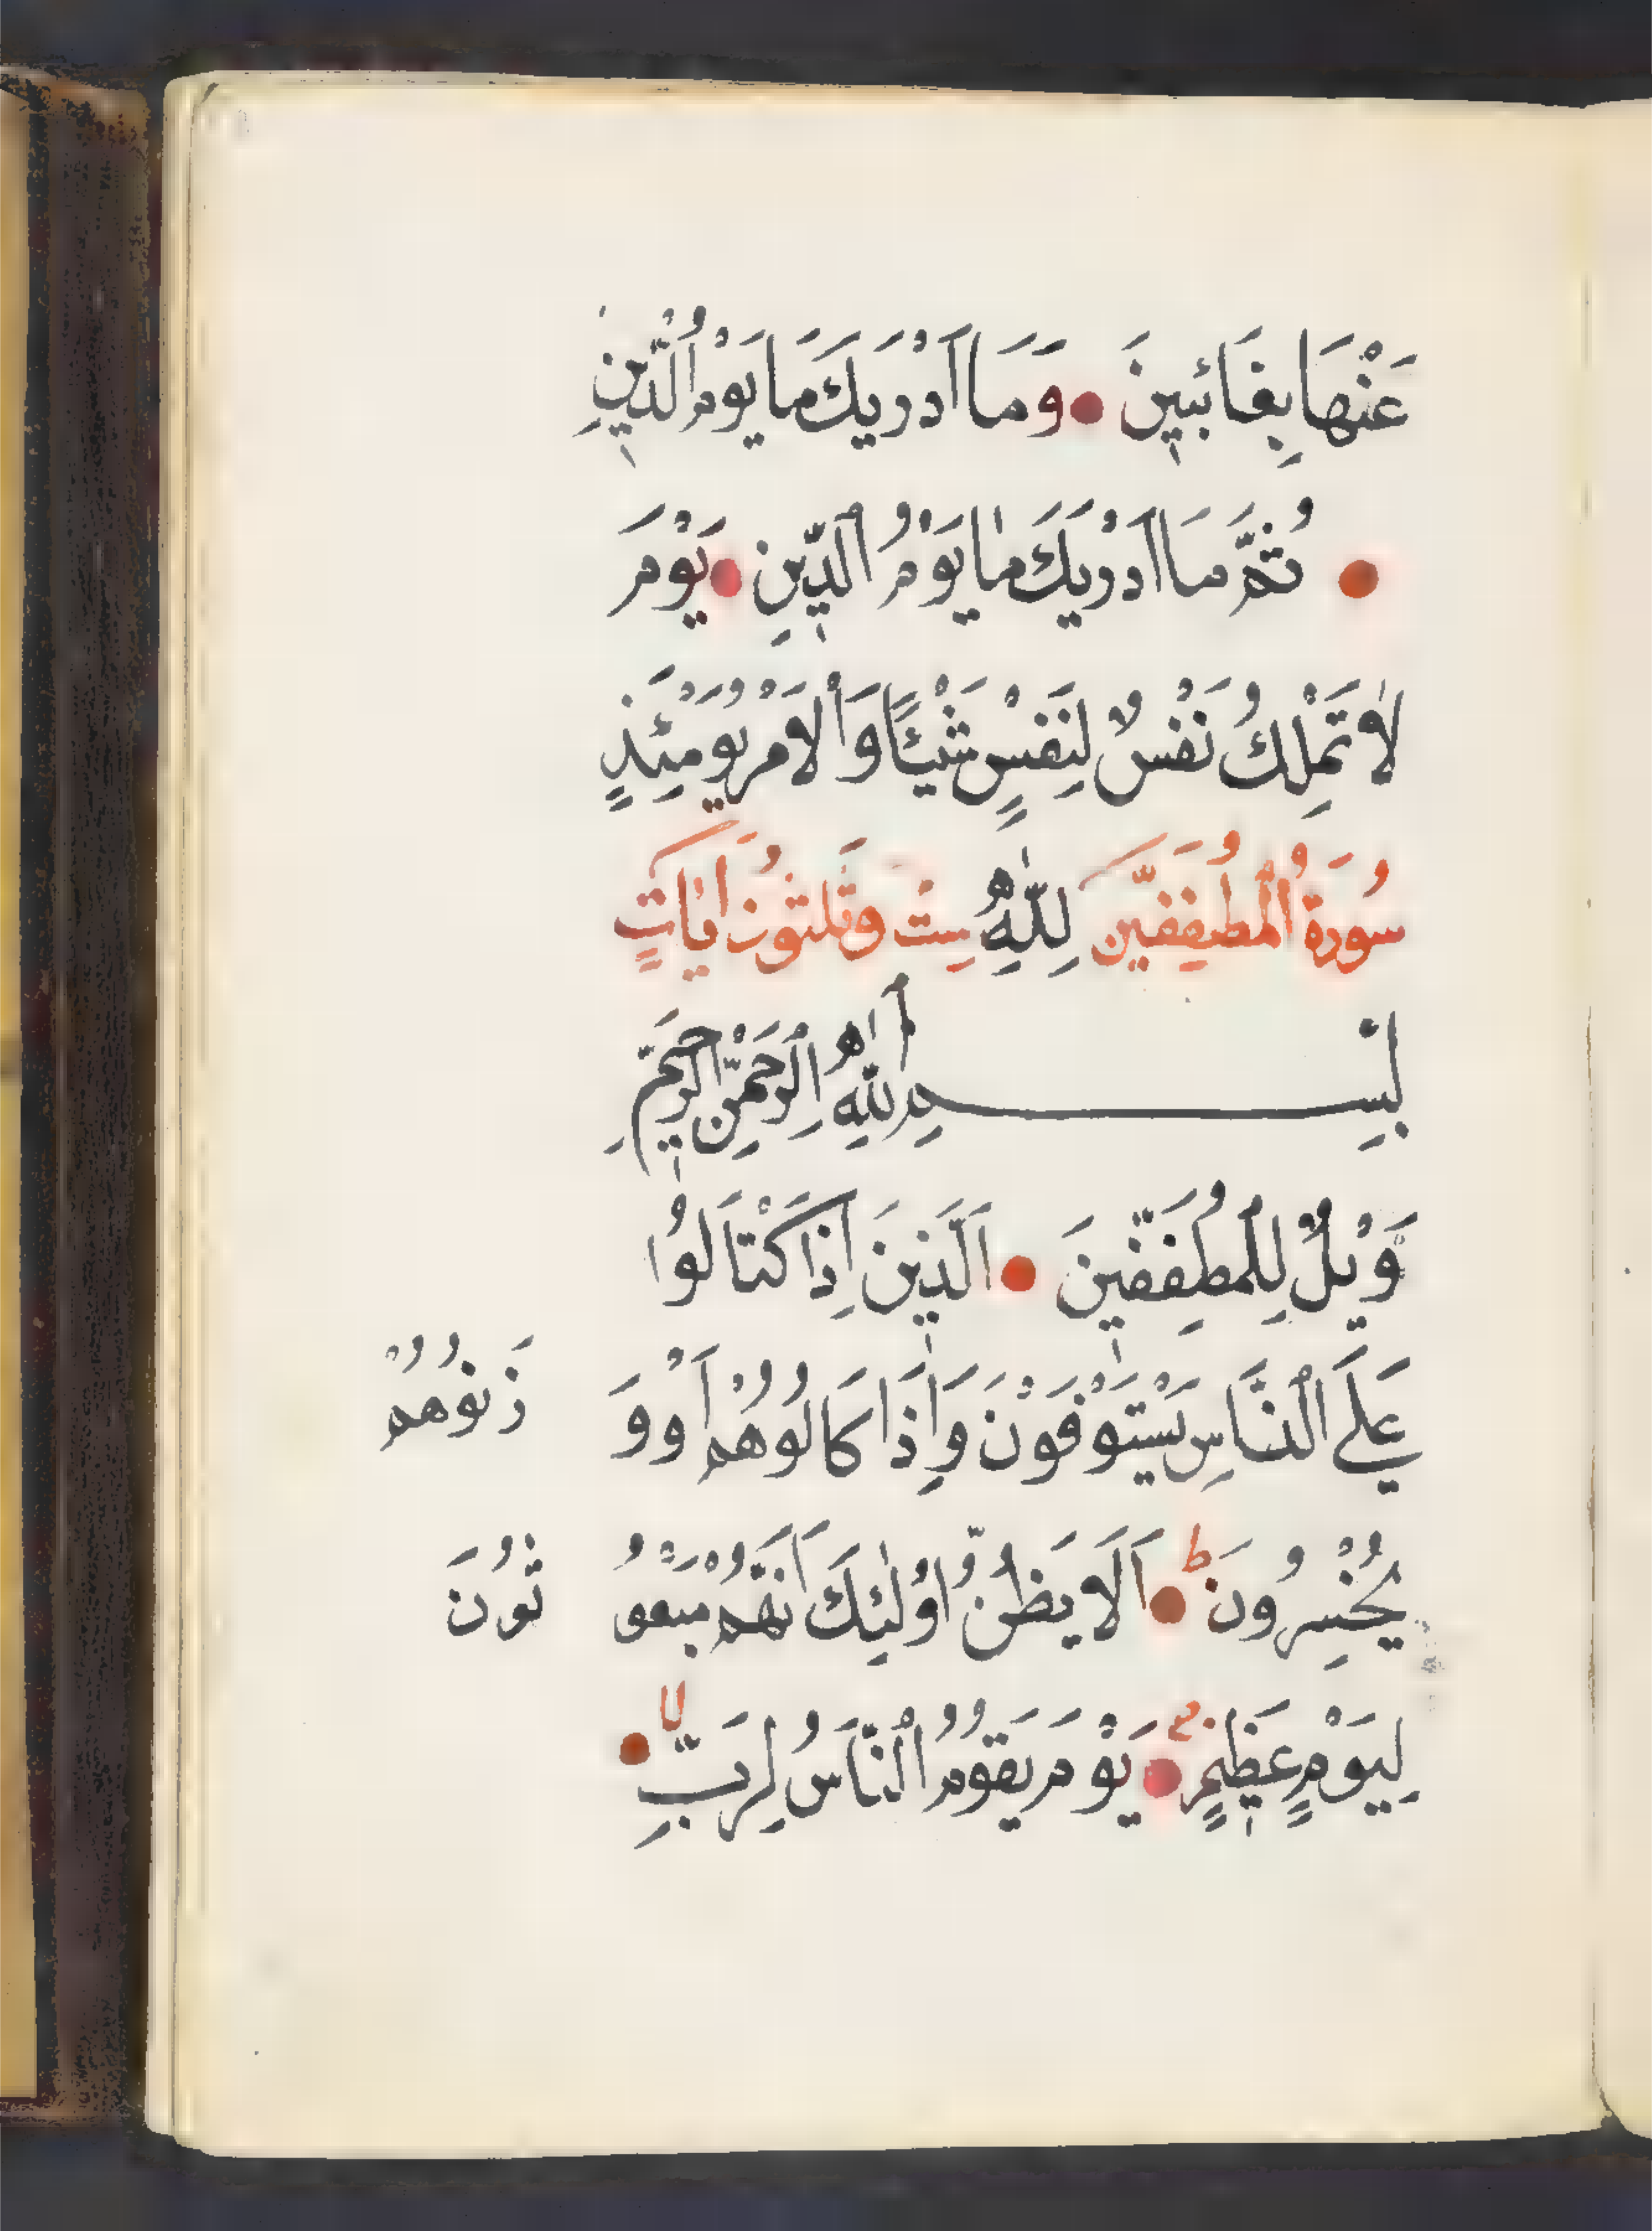 عَنْهَا بِغَائِبِينَ ● وَمَا اَدْرٰيكَ مَا يَوْمُ الدِّينِ
● ثُمَّ مَا اَدْرٰيكَ مَا يَوْمُ الدِّينِ ● يَوْمَ
لَا تَمْلِكُ نَفْسٌ لِنَفْسٍ شَيْئًا وَالْاَمْرُ يَوْمَئِذٍ
سُورَةُ الْمُطَفِّفِينَ لِلّٰهِ سِتٌّ وَثَلٰثُونَ اٰيَاتٍ
بِسْمِ اللّٰهِ الرَّحْمٰنِ الرَّحِيمِ
وَيْلٌ لِلْمُطَفِّفِينَ ● اَلَّذِينَ اِذَا كْتَالُوا
عَلَى النَّاسِ يَسْتَوْفُونَ وَاِذَا كَالُوهُمْ اَوْ وَ زَنُوهُمْ
يُخْسِرُونَ ط ● اَلَا يَظُنُّ اُولٰئِكَ اَنَّهُمْ مَبْعُو ثُونَ
لِيَوْمٍ عَظِيمٍ ● يَوْمَ يَقُومُ النَّاسُ لِرَبِّ لا ●